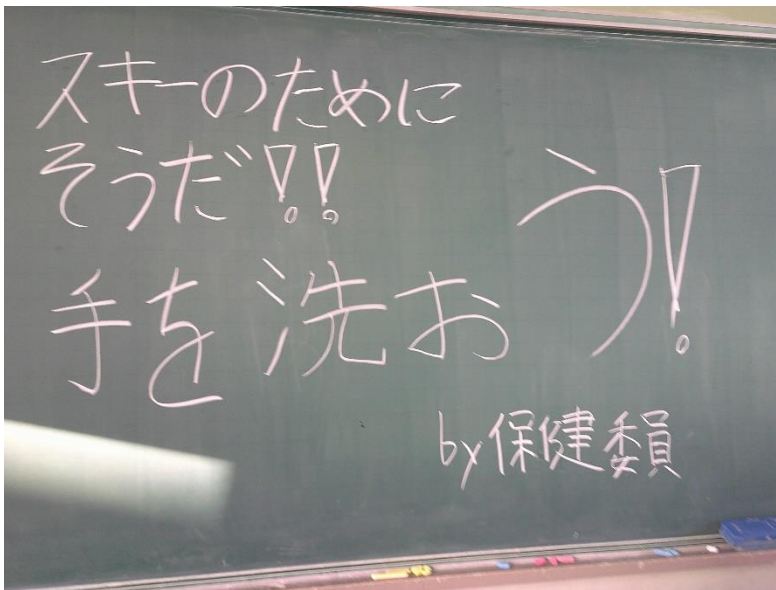 スキーのために
そうだ!!
手を洗おう!
by保健委員